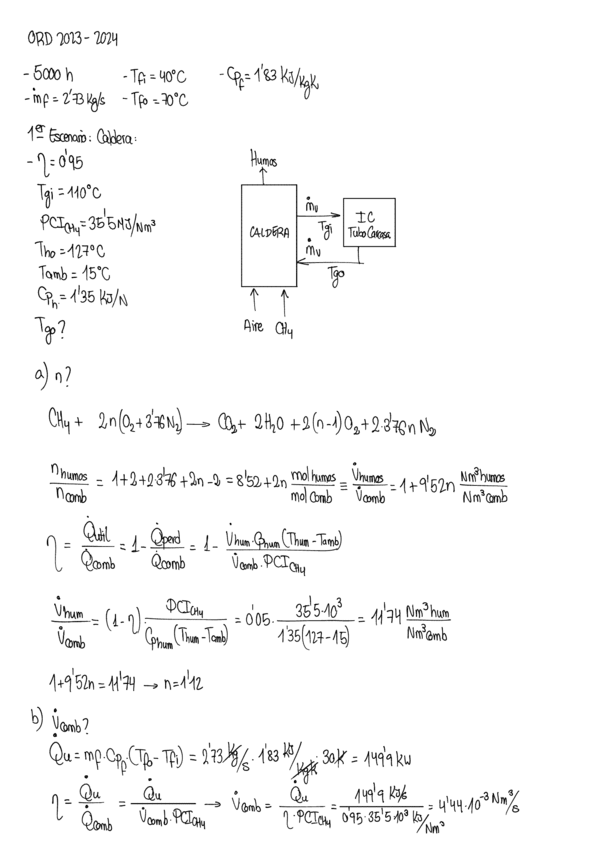 ORD 2023-2024
- 5000 h - Tfi = 40°C - Cpf = 1'83 KJ/KgK
- ṁf = 2'73 Kg/s - Tfo = 70°C
1er Escenario: Caldera:
- η = 0'95
Tgi = 110°C
PCI CH4 = 35'5 MJ/Nm³
Tho = 127°C
Tamb = 15°C
Cph = 1'35 KJ/N
Tgo?
Humos
CALDERA
ṁv
Tgi
IC
Tubo Carcasa
ṁv
Tgo
Aire CH4
a) n?
CH4 + 2n(O2 + 3'76N2) → CO2 + 2H2O + 2(n-1)O2 + 2·3'76n N2
n humos / n comb = 1+2+2·3'76+2n-2 = 8'52+2n mol humos / mol comb ≡ V̇humos / V̇comb = 1+9'52n Nm³ humos / Nm³ comb
η = Q̇util / Q̇comb = 1 - Q̇perd / Q̇comb = 1 - V̇hum·Cphum(Thum-Tamb) / V̇comb·PCI CH4
V̇hum / V̇comb = (1-η)· PCI CH4 / Cphum(Thum-Tamb) = 0'05· 35'5·10³ / 1'35(127-15) = 11'74 Nm³ hum / Nm³ comb
1+9'52n = 11'74 → n = 1'12
b) V̇comb?
Q̇u = mf·Cpf·(Tfo-Tfi) = 2'73 Kg/s · 1'83 KJ/KgK · 30K = 149'9 kW
η = Q̇u / Q̇comb = Q̇u / V̇comb·PCI CH4 → V̇comb = Q̇u / η·PCI CH4 = 149'9 KJ/s / 0'95·35'5·10³ KJ/Nm³ = 4'44·10⁻³ Nm³/s